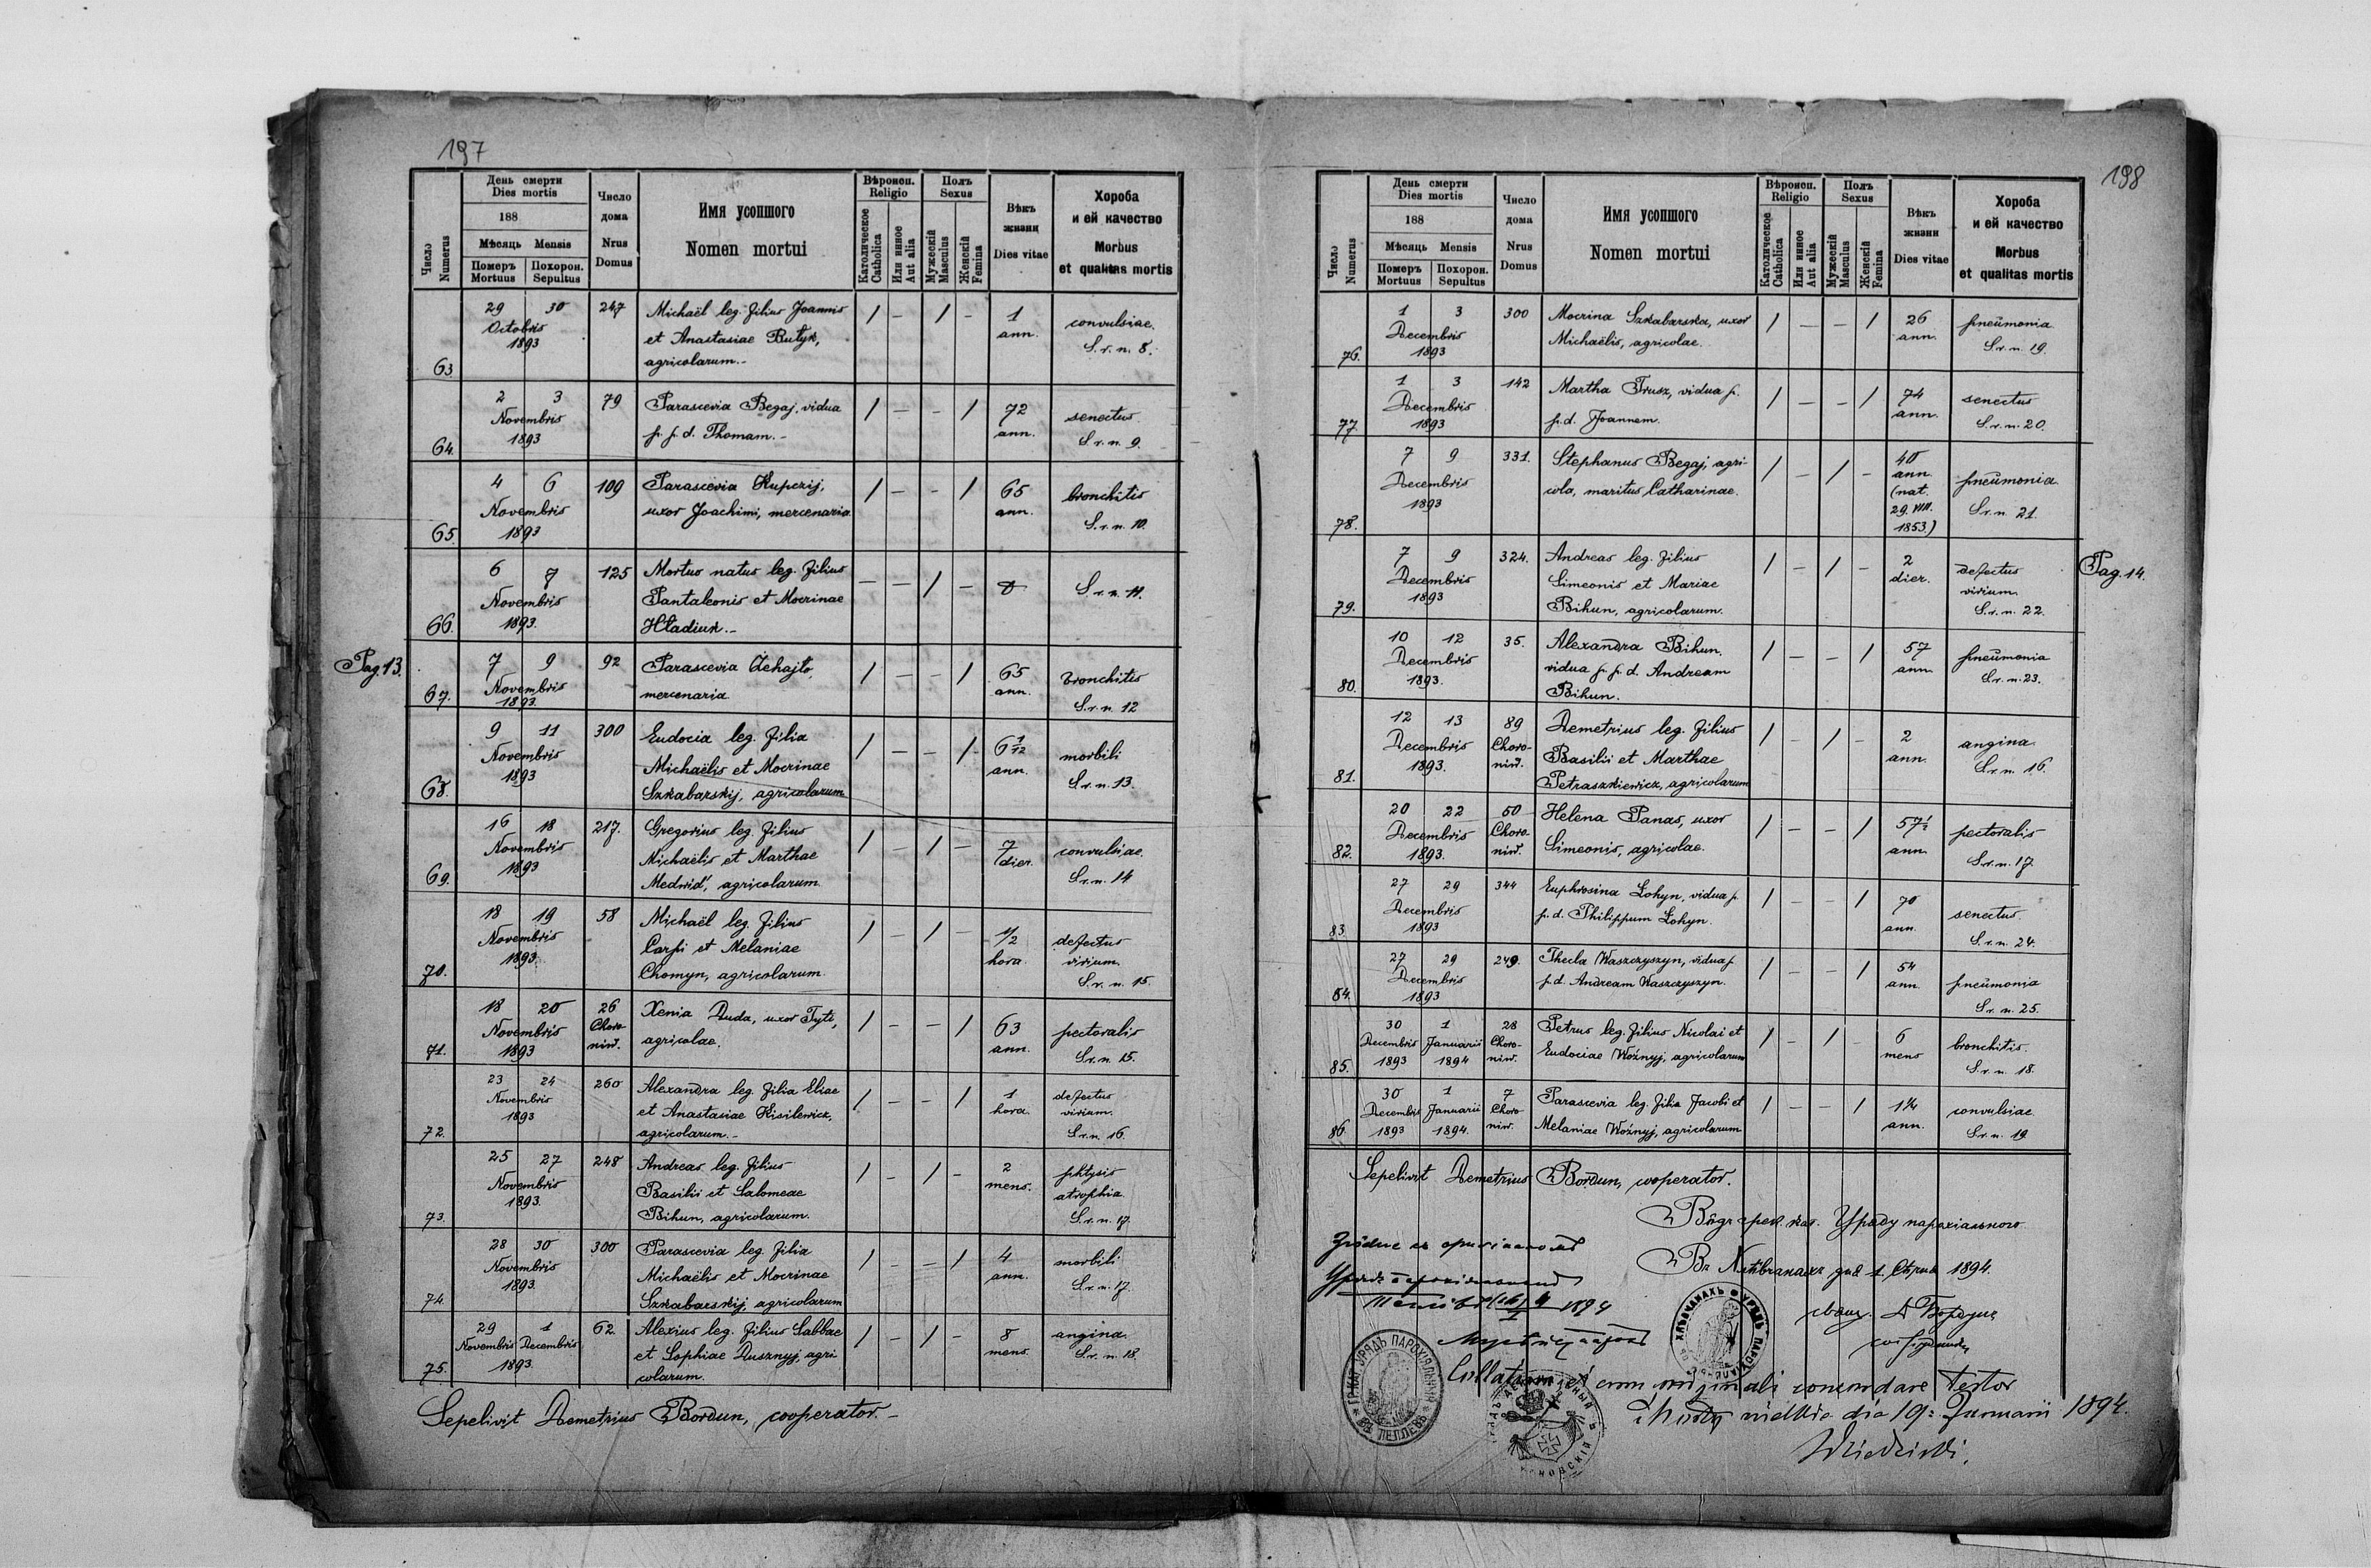 197
Число
Numerus
День смерти
Dies mortis
188
Мѣсяць Mensis
Померъ Похорон.
Mortuus Sepultus
Число
дома
Nrus
Domus
Имя усопшого
Nomen mortui
Вѣроисп.
Religio
Католическое
Catholica
Или инное
Aut alia
Полъ
Sexus
Мужескій
Masculus
Женскій
Femina
Вѣкъ
жизни
Dies vitae
Хороба
и ей качество
Morbus
et qualitas mortis
63.
29 30
Octobris
1893
247
Michaël leg. filius Joannis
et Anastasiae Butyk,
agricolarum.-
/ - / -
1
ann.
convulsiae.
S. r. n. 8.
64.
2 3
Novembris
1893
79
Parascevia Begaj, vidua
p. p. d. Thomam.-
/ - - /
72
ann.
senectus.
S. r. n. 9.
65.
4 6
Novembris
1893
109
Parascevia Kupczij,
uxor Joachimi, mercenaria.
/ - - /
65
ann.
bronchitis
S. r. n. 10.
66.
6 7
Novembris
1893.
125
Mortuo natus leg. filius
Pantaleonis et Mocrinae
Hładiuk.-
- - / -
S. r. n. 11.
Pag. 13.
67.
7 9
Novembris
1893.
92
Parascevia
mercenaria
/ - - /
65
ann.
bronchitis
S. r. n. 12
68.
9 11
Novembris
1893
300
Eudocia leg. filia
Michaëlis et Mocrinae
Szkabarskij, agricolarum
/ - - /
6 1/12
ann.
morbili
S. r. n. 13.
69.
16 18
Novembris
1893
217.
Gregorius leg. filius
Michaëlis et Marthae
Medwid', agricolarum.
/ - / -
7
dier.
convulsiae.
S. r. n. 14
70.
18 19
Novembris
1893.
58
Michaël leg. filius
Carpi et Melaniae
Chomyn, agricolarum.
/ - / -
1/2
hora.
defectus
virium.
S. r. n. 15.
71.
18 20
Novembris
1893
26
Choro-
niw.
Xenia Duda, uxor Tyti,
agricolae.
/ - - /
63
ann.
pectoralis
S. r. n. 15.
72.
23 24
Novembris
1893
260
Alexandra leg. filia Eliae
et Anastasiae Kisilewicz,
agricolarum.-
/ - - /
1
hora.
defectus
virium.
S. r. n. 16.
73.
25 27
Novembris
1893.
248
Andreas leg. filius
Basilii et Salomeae
Bihun, agricolarum.
/ - / -
2
mens.
phtysis
atrophia.
S. r. n. 17.
74.
28 30
Novembris
1893.
300
Parascevia leg. filia
Michaëlis et Mocrinae
Szkabarskij, agricolarum
/ - - /
4
ann.
morbili
S. r. n. 17.
75.
29 1
Novembris Decembris
1893.
62.
Alexius leg. filius Sabbae
et Sophiae Dusznyj, agri
colarum.
/ - / -
8
mens.
angina.
S. r. n. 18.
Sepelivit Demetrius Bordun, cooperator.-
198
Число
Numerus
День смерти
Dies mortis
188
Мѣсяць Mensis
Померъ Похорон.
Mortuus Sepultus
Число
дома
Nrus
Domus
Имя усопшого
Nomen mortui
Вѣроисп.
Religio
Католическое
Catholica
Или инное
Aut alia
Полъ
Sexus
Мужескій
Masculus
Женскій
Femina
Вѣкъ
жизни
Dies vitae
Хороба
и ей качество
Morbus
et qualitas mortis
76.
1 3
Decembris
1893
300
Mocrina Szkabarska, uxor
Michaëlis, agricolae.
/ - - /
26
ann.
pneumonia.
S. r. n. 19.
77.
1 3
Decembris
1893
142
Martha Trusz, vidua p.
p. d. Joannem.
/ - - /
74
ann.
senectus
S. r. n. 20.
78.
7 9
Decembris
1893
331.
Stephanus Begaj, agri-
cola, maritus Catharinae.
/ - / -
40
ann.
(nat.
29. VIII.
1853)
pneumonia.
S. r. n. 21.
79.
7 9
Decembris
1893
324.
Andreas leg. filius
Simeonis et Mariae
Bihun, agricolarum.
/ - / -
2
dier.
defectus
virium.
S. r. n. 22.
Pag. 14.
80.
10 12
Decembris
1893.
35.
Alexandra Bihun,
vidua p. p. d. Andream
Bihun.
/ - - /
57
ann.
pneumonia
S. r. n. 23.
81.
12 13
Decembris
1893.
89
Choro-
niw.
Demetrius leg. filius
Basilii et Marthae
Petraszkiewicz, agricolarum
/ - / -
2
ann.
angina.
S. r. n. 16.
82.
20 22
Decembris
1893.
50
Choro-
niw.
Helena Panas, uxor
Simeonis, agricolae.
/ - - /
57 1/2
ann.
pectoralis
S. r. n. 17.
83.
27 29
Decembris
1893
344
Euphrosina Łohyn, vidua p.
p. d. Philippum Łohyn.
/ - - /
70
ann.
senectus.
S. r. n. 24.
84.
27 29
Decembris
1893
249.
Thecla Waszczyszyn, vidua p.
p. d. Andream Waszczyszyn.
/ - - /
54
ann.
pneumonia
S. r. n. 25.
85.
30 1
Decembris Januarii
1893 1894
28
Choro-
niw.
Petrus leg. filius Nicolai et
Eudociae Woźnyj, agricolarum
/ - / -
6
mens
bronchitis.
S. r. n. 18.
86.
30 1
Decembris Januarii
1893 1894.
7
Choro-
niw.
Parascevia leg. filia Jacobi et
Melaniae Woźnyj, agricolarum
/ - - /
1 1/4
ann.
convulsiae
S. r. n. 19
Sepelivit Demetrius Bordun, cooperator.
Уряду парохіального
1894.
1894
Collatum cum originali concordare testor
Mosty wielkie dia 19 Januarii 1894.